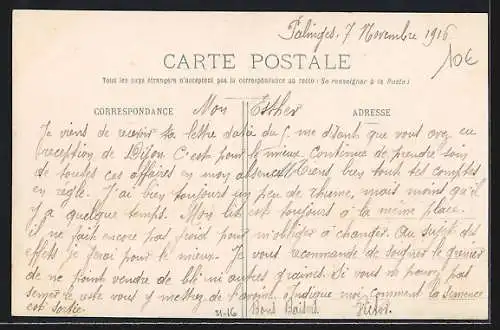 Palinges, 7 Novembre 1916
10€
CARTE POSTALE
Tous les pays étrangers n'acceptent pas la correspondance au recto (Se renseigner à la Poste)
CORRESPONDANCE
ADRESSE
Mon Esther
Je viens de recevoir ta lettre datée du 5 me disant que vous avez eu
reception de Dijon. C'est pour le mieux. Continue de prendre soin
de toutes ces affaires en mon absence. Tiens bien tout tes comptes
en règle. J'ai bien toujours un peu de rhume, mais moins qu'il
y a quelque temps. Mon lit est toujours à la même place.
il ne fait encore pas froid pour m'obliger à changer. Au sujet des
effets je ferai pour le mieux. Je vous recommande de soigner le grenier
de ne point vendre de blé ni autres grains. Si vous ne pouvez pas
semer le reste vous y mettrez de l'avoine. Indique moi comment la semence
est sortie.
31-16
Bons Baisers.